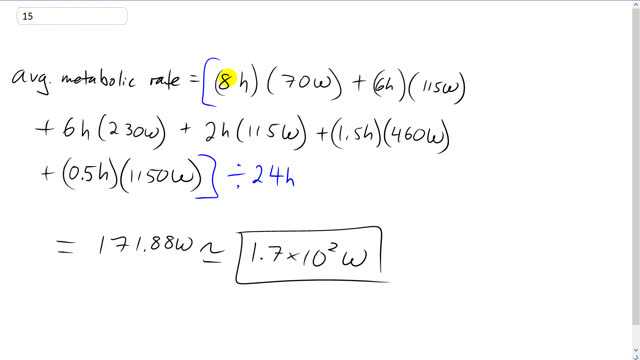 15
avg. metabolic rate = [(8h)(70W) + (6h)(115W)
+ 6h(230W) + 2h(115W) + (1.5h)(460W)
+ (0.5h)(1150W)] ÷ 24h
= 171.88W ≃ 1.7 × 10² W